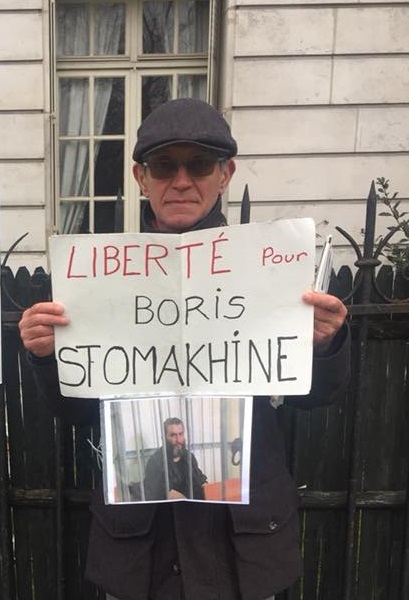 LIBERTÉ Pour
BORIS
STOMAKHINE